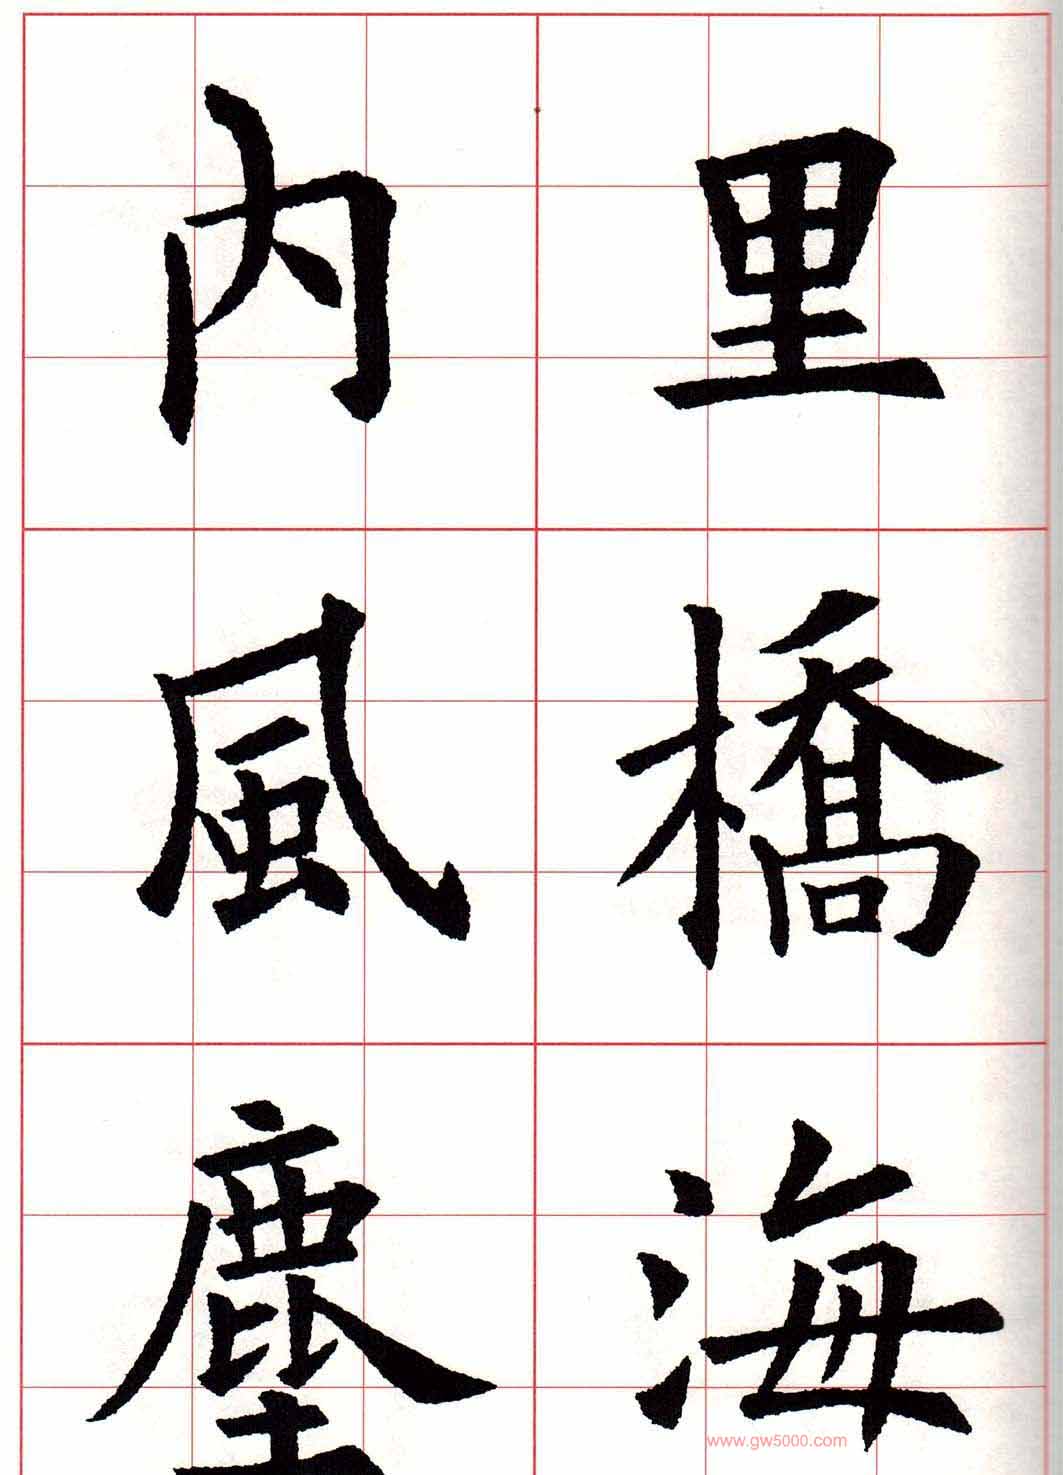 里橋海
内風塵
www.gw5000.com